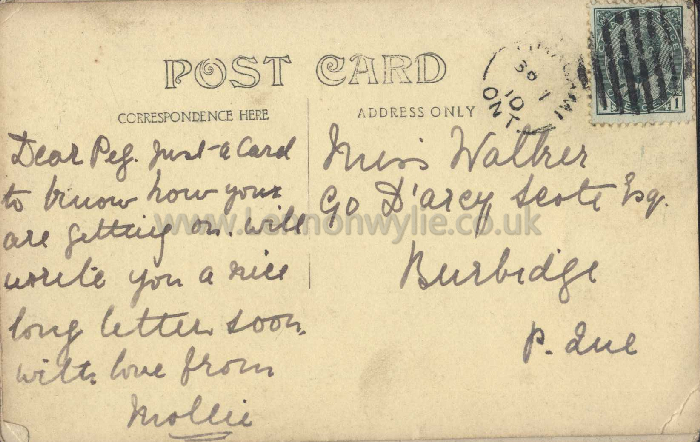 POST CARD
CORRESPONDENCE HERE
ADDRESS ONLY
Dear Peg. Just a Card
to know how your
are getting on. will
write you a nice
long letter soon.
with love from
Mollie
Miss Walker
c/o D'arcy Scott Esq.
Burbidge
P. Que
SP 7
10
ONT
1
www.Lennonwylie.co.uk